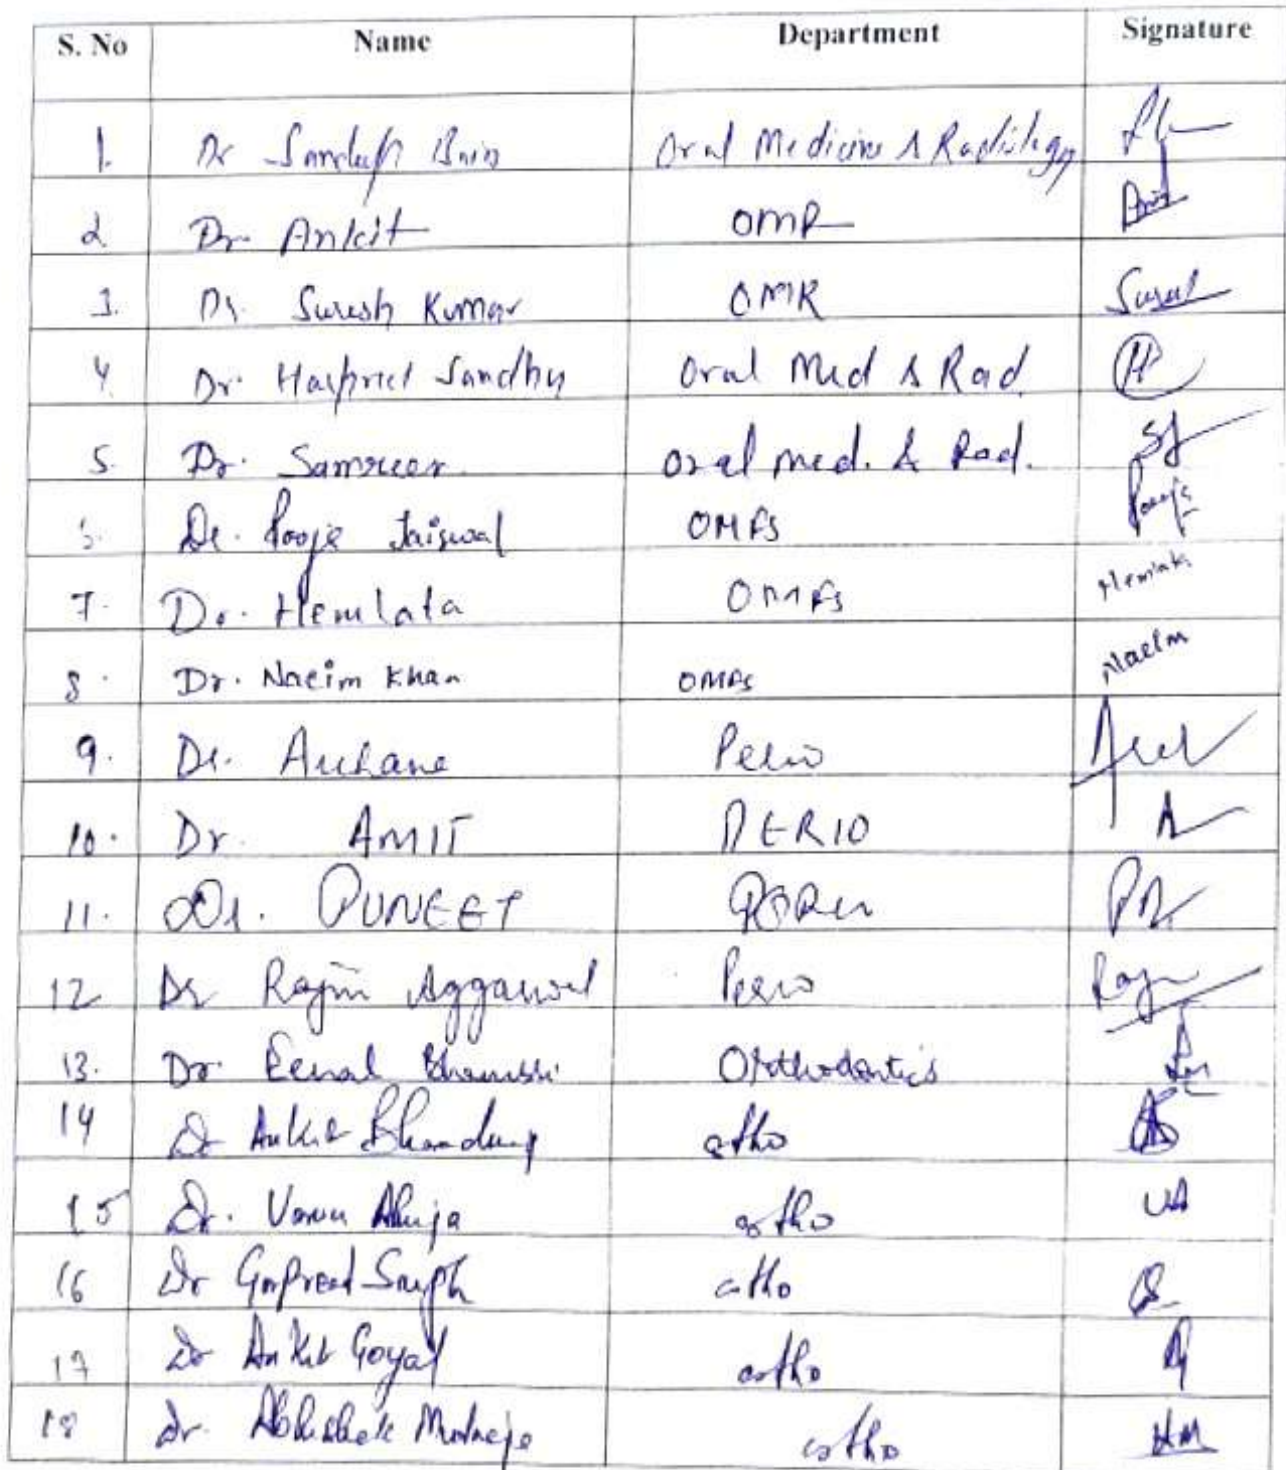 S. No Name Department Signature
1. Dr Sandeep Oral Medicine & Radiology
2 Dr. Ankit OMR
3. Dr. Suresh Kumar OMR Suresh
4 Dr. Harpreet Sandhu Oral Med & Rad
5. Dr. Sameer Oral med. & Rad. SJ
Dr. Pooja Jaiswal OMFS Pooja
7. Dr. Hemlata OMFS Hemlata
8. Dr. Naeim Khan OMFS Naeim
9. Dr. Archana Perio
10. Dr. AMIT PERIO A
11. Dr. PUNEET
12 Dr Rajni Aggarwal Perio
13. Dr. Orthodontics
14 Dr Ankit ortho
15 Dr. Varun Ahuja ortho VA
16 Dr Gurpreet Singh ortho
17 Dr Ankit Goyal ortho
18 Dr. Abhishek ortho